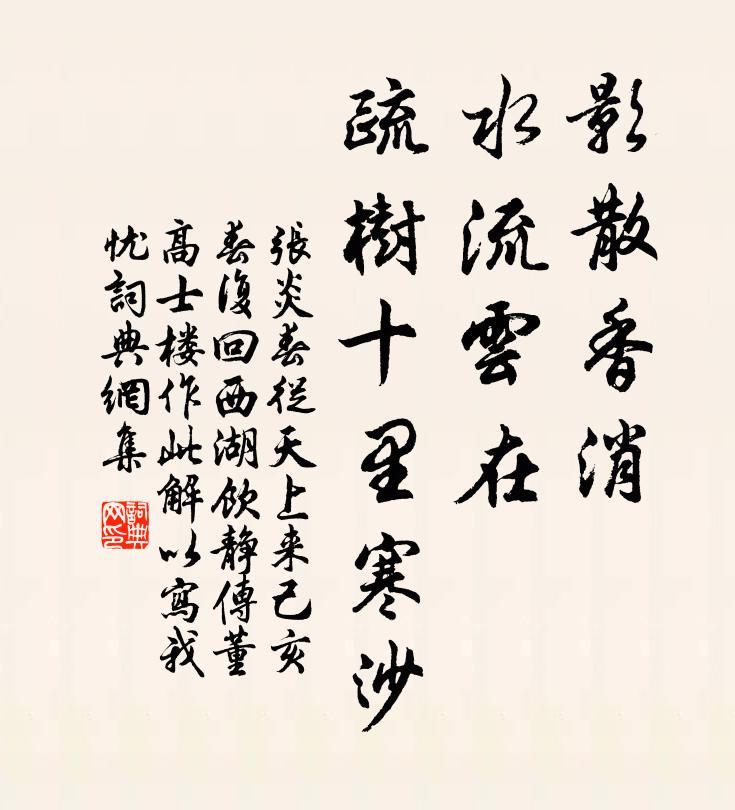 影散香消
水流雲在
疏樹十里寒沙
張炎春從天上来己亥
春復回西湖飲靜傳董
高士楼作此解以寫我
忧詞典網集
詞典
网印